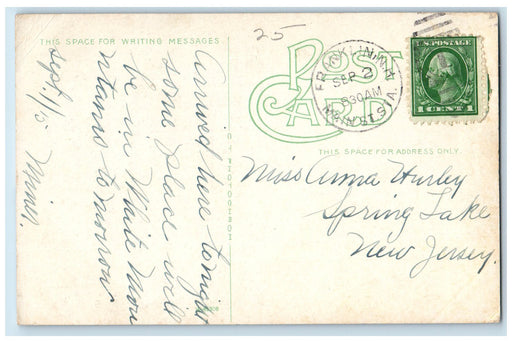 25
THIS SPACE FOR WRITING MESSAGES
POST
CARD
FRANKLIN, W.VA.
SEP 2
530AM
U.S. POSTAGE
1 CENT 1
THIS SPACE FOR ADDRESS ONLY.
Miss Anna Hurley
Spring Lake
New Jersey.
Arrived here tonight
some place will
be in White Moun
ntains tomorrow
Sept. 1/15